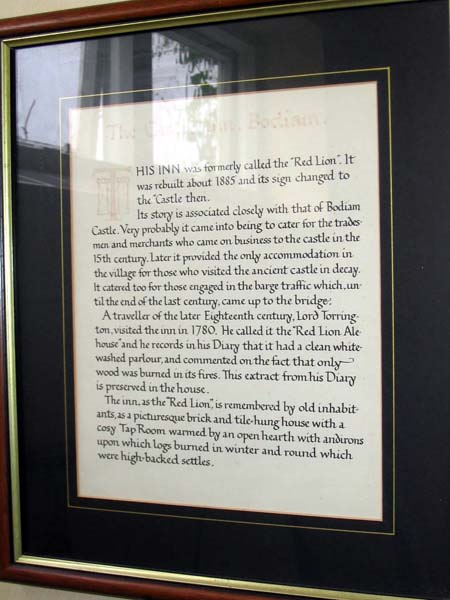 The Castle Inn, Bodiam.
THIS INN was formerly called the "Red Lion". It
was rebuilt about 1885 and its sign changed to
the "Castle then.
Its story is associated closely with that of Bodiam
Castle. Very probably it came into being to cater for the trades-
men and merchants who came on business to the castle in the
15th century. Later it provided the only accommodation in
the village for those who visited the ancient castle in decay.
It catered too for those engaged in the barge traffic which, un-
til the end of the last century, came up to the bridge.
A traveller of the later Eighteenth century, Lord Torring-
ton, visited the inn in 1780. He called it the "Red Lion Ale-
house" and he records in his Diary that it had a clean white-
washed parlour, and commented on the fact that only
wood was burned in its fires. This extract from his Diary
is preserved in the house.
The inn, as the "Red Lion", is remembered by old inhabit-
ants, as a picturesque brick and tile-hung house with a
cosy Tap Room warmed by an open hearth with andirons
upon which logs burned in winter and round which
were high-backed settles.